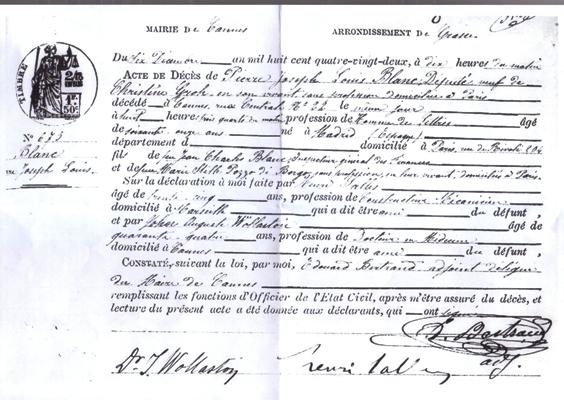 MAIRIE de Cannes ARRONDISSEMENT de Grasse
Du six Décembre un mil huit cent quatre-vingt-deux, à dix heures du matin
ACTE DE DÉCÈS de Pierre Joseph Louis Blanc Député veuf de
Christine Groh en son vivant sans profession domicilié à Paris
décédé à Cannes, rue Centrale N° 22 le même jour
à huit heures trois quarts du matin profession de Homme de Lettres âgé
de soixante onze ans né à Madrid (Espagne)
département d domicilié à Paris, rue de Rivoli 204
fils de feu Jean Charles Blanc Inspecteur général des finances
et de feue Marie Stelle Pozzo di Borgo, sans profession, en leur vivant, domiciliés à Paris.
Sur la déclaration à moi faite par Henri Salles
âgé de trente cinq ans, profession de Constructeur Mécanicien
domicilié à Marseille qui a dit être ami du défunt,
et par John Auguste Wollaston âgé de
quarante quatre ans, profession de Docteur en Médecine
domicilié à Cannes qui a dit être ami du défunt,
CONSTATÉ, suivant la loi, par moi, Edouard Bertrand adjoint délégué
du Maire de Cannes
remplissant les fonctions d'Officier de l'Etat Civil, après m'être assuré du décès, et
lecture du présent acte a été donnée aux déclarants, qui ont signé
E. Bertrand
adj.
Dr. J Wollaston
TIMBRE
1F.
50c.
N° 673
Blanc
Joseph Louis.